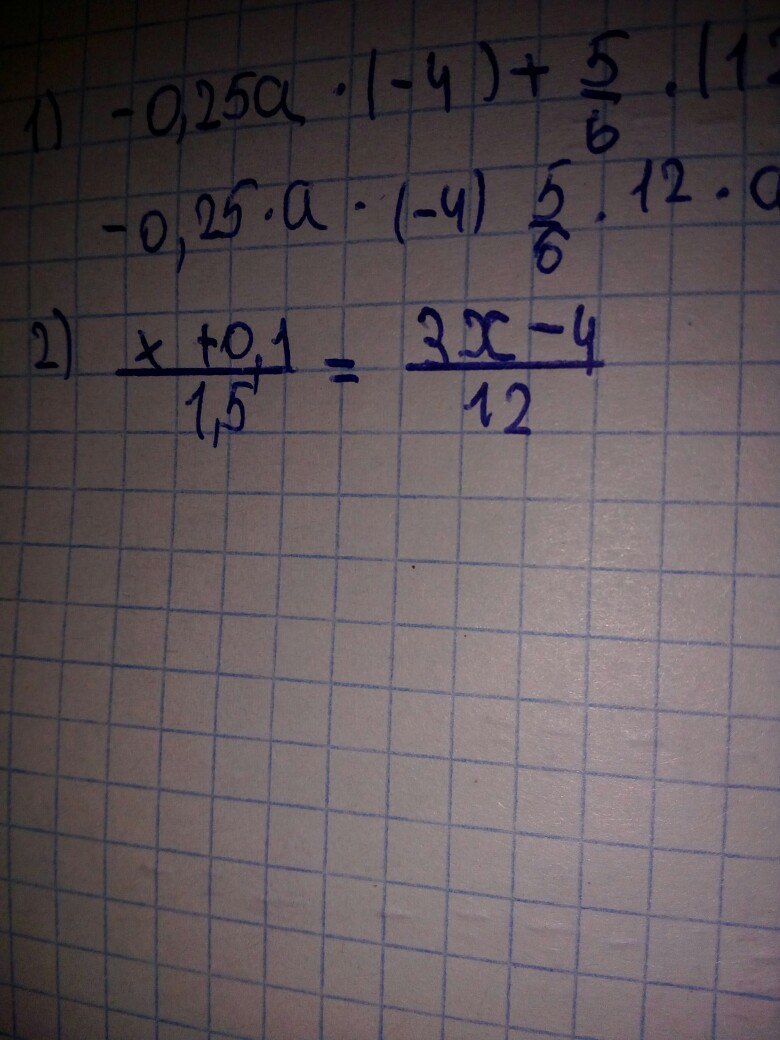 1) -0,25a · (-4) + 5/6 · (12
-0,25 · a · (-4) 5/6 · 12 · a
2) x +0,1 / 1,5 = 3x - 4 / 12